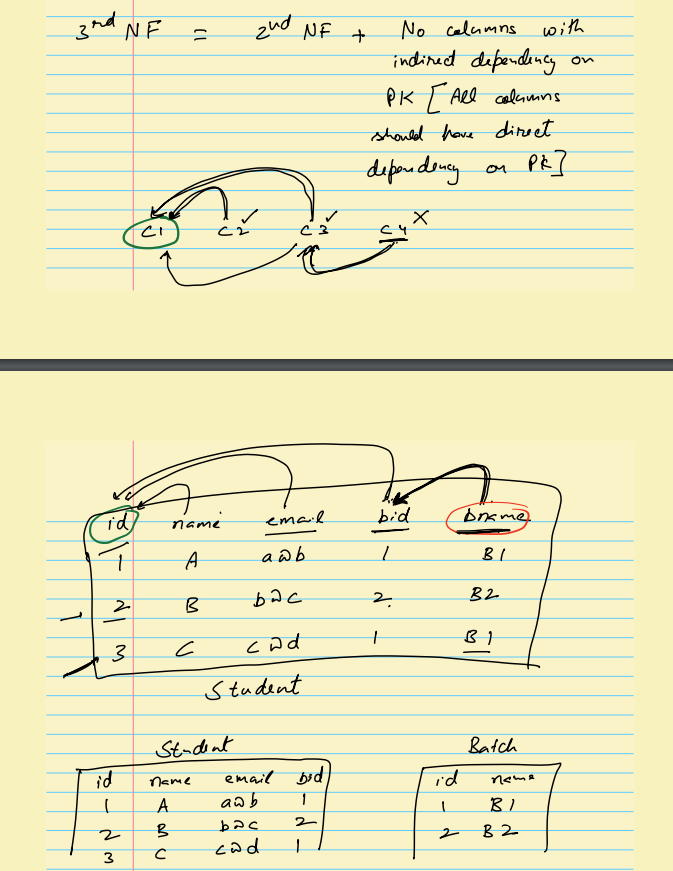 3rd NF = 2nd NF + No columns with
indirect dependency on
PK [All columns
should have direct
dependency on PK]
C1 C2 ✓ C3 ✓ C4 X
id name email bid bname
1 A a@b 1 B1
2 B b@c 2 B2
3 C c@d 1 B1
Student
Student Batch
id name email bid id name
1 A a@b 1 1 B1
2 B b@c 2 2 B2
3 C c@d 1